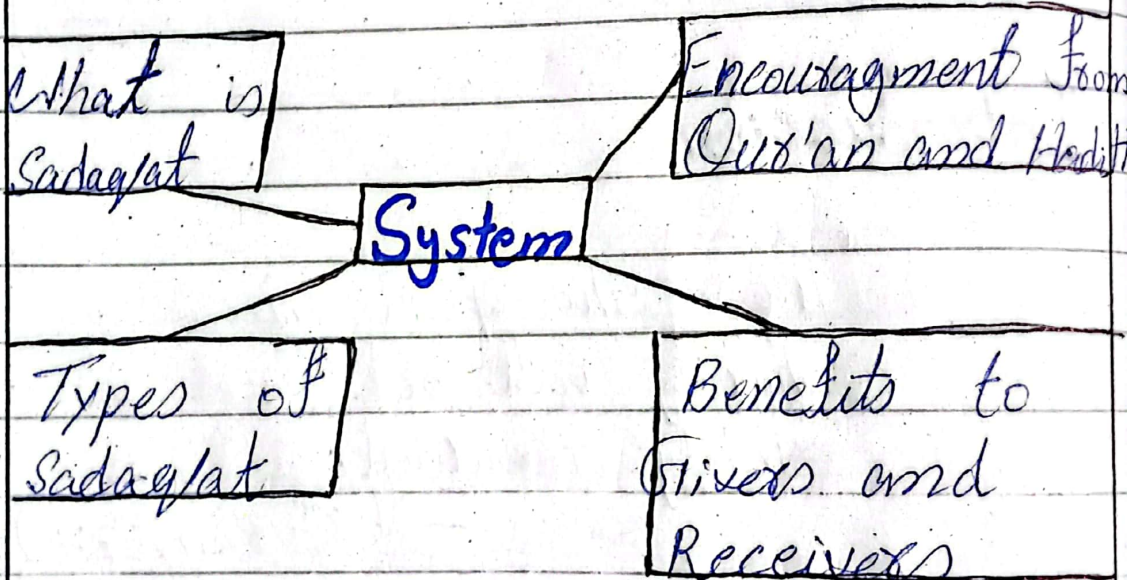 What is
Sadaqat
Encouragment from
Qur'an and Hadith
System
Types of
Sadaqat
Benefits to
Givers and
Receivers